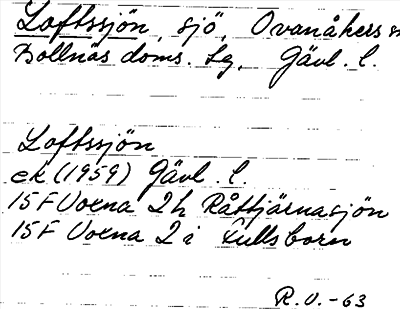 Loftssjön, sjö, Ovanåkers s
Bollnäs doms. lg, Gävl. l.
Loftssjön
ek (1959) Gävl. l.
15F Voxna 2h Råttjärnasjön
15F Voxna 2i Lullsborn
R.U.-63